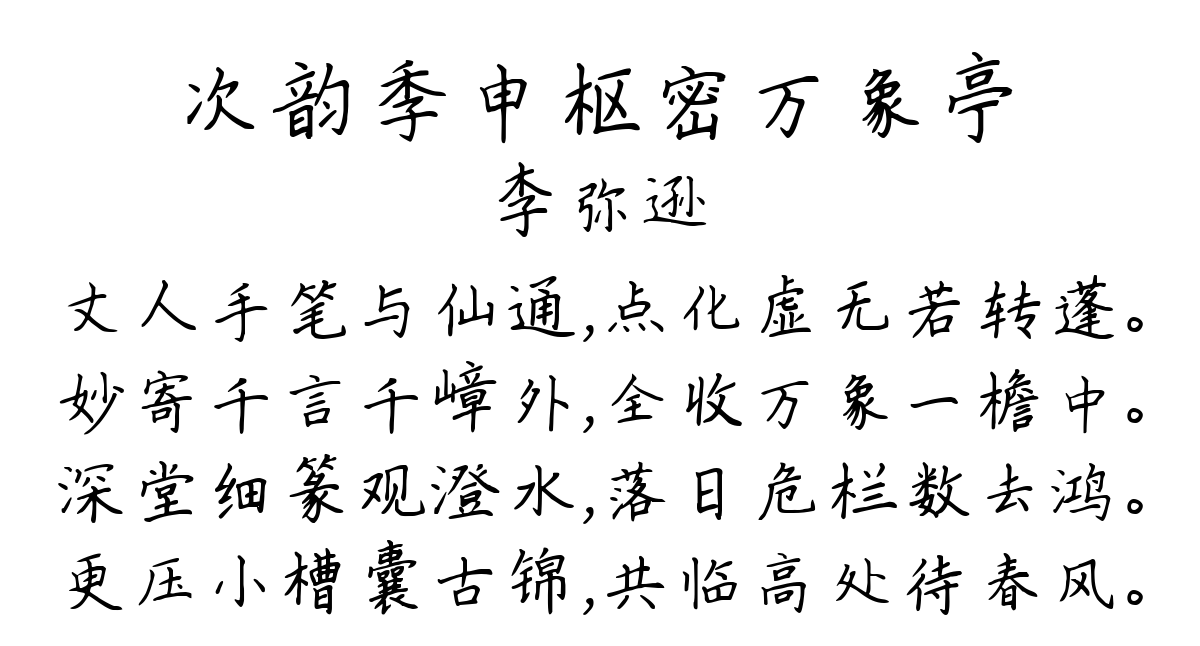 次韵季申枢密万象亭
李弥逊
丈人手笔与仙通,点化虚无若转蓬。
妙寄千言千嶂外,全收万象一檐中。
深堂细篆观澄水,落日危栏数去鸿。
更压小槽囊古锦,共临高处待春风。